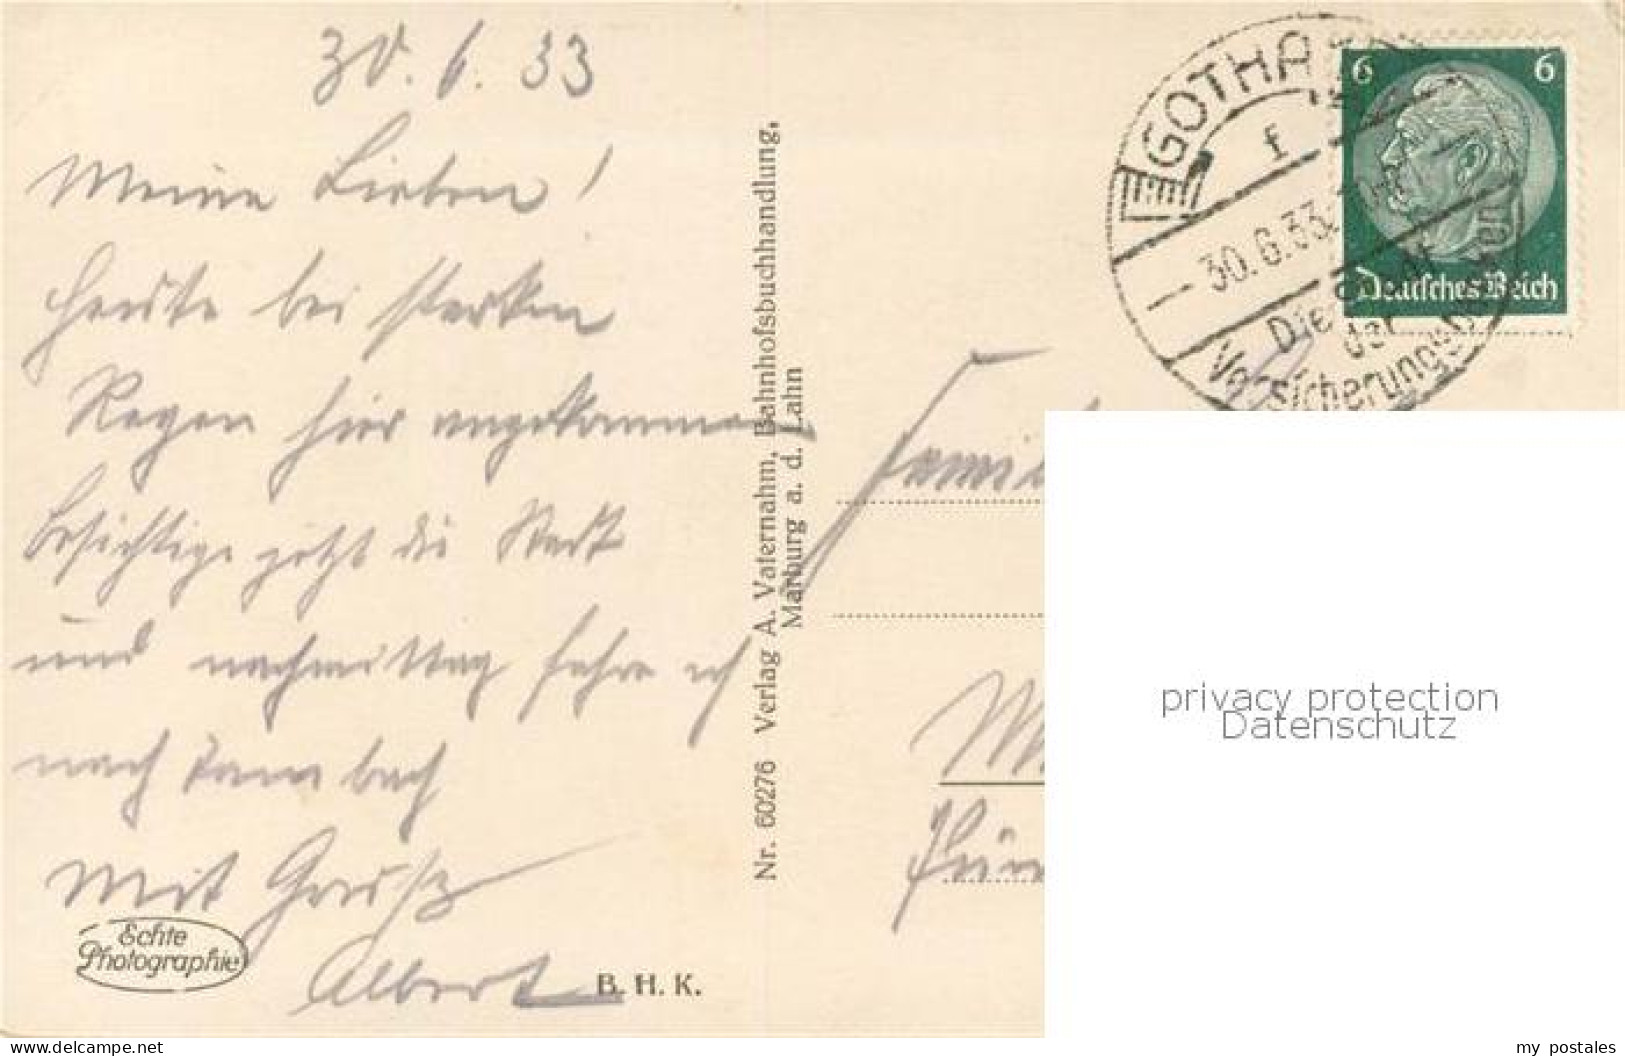 30. 6. 33
Meine Lieben!
Heute bei starken
Regen hier angekommen
besichtige jetzt die Stadt
und nachmittag fahre ich
nach Tambach
Mit Gruß
Albert
Echte
Photographie
B. H. K.
Nr. 60276 Verlag A. Vaternahm, Bahnhofsbuchhandlung,
Marburg a. d. Lahn
GOTHA
f
30.6.33
Die Stadt
der
Versicherungsbanken
6 6
Deutsches Reich
privacy protection
Datenschutz
delcampe.net
my_postales